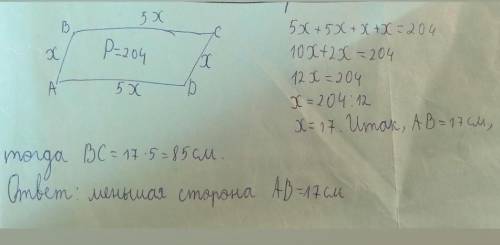 5x
B
C
x
P=204
x
A
5x
D
5x+5x+x+x=204
10x+2x=204
12x=204
x=204:12
x=17. Итак, AB=17см,
тогда BC=17·5=85см.
Ответ: меньшая сторона AB=17см